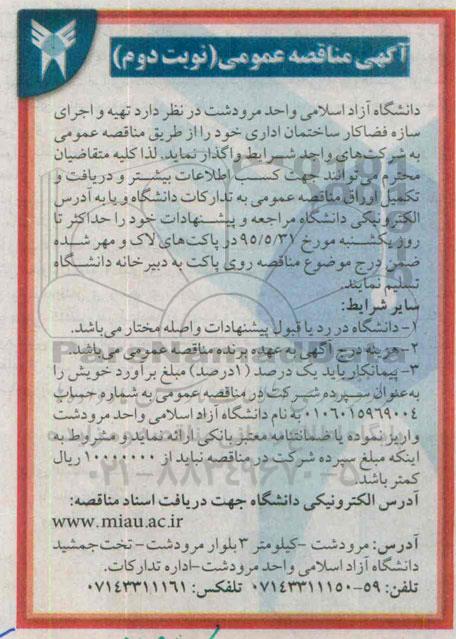 آگهی مناقصه عمومی (نوبت دوم)
دانشگاه آزاد اسلامی واحد مرودشت در نظر دارد تهیه و اجرای
سازه فضاکار ساختمان اداری خود را از طریق مناقصه عمومی
به شرکت‌های واجد شرایط واگذار نماید. لذا کلیه متقاضیان
محترم می‌توانند جهت کسب اطلاعات بیشتر و دریافت و
تکمیل اوراق مناقصه عمومی به تدارکات دانشگاه و یا به آدرس
الکترونیکی دانشگاه مراجعه و پیشنهادات خود را حداکثر تا
روز یکشنبه مورخ ۹۵/۵/۳۱ در پاکت‌های لاک و مهر شده
ضمن درج موضوع مناقصه روی پاکت به دبیرخانه دانشگاه
تسلیم نمایند.
سایر شرایط:
۱- دانشگاه در رد یا قبول پیشنهادات واصله مختار می‌باشد.
۲- هزینه درج آگهی به عهده برنده مناقصه عمومی می‌باشد.
۳- پیمانکار باید یک درصد (۱درصد) مبلغ برآورد خویش را
به عنوان سپرده شرکت در مناقصه عمومی به شماره حساب
۰۱۰۶۰۱۵۹۶۹۰۰۴ به نام دانشگاه آزاد اسلامی واحد مرودشت
واریز نموده یا ضمانتنامه معتبر بانکی ارائه نماید و مشروط به
اینکه مبلغ سپرده شرکت در مناقصه نباید از ۱۰۰۰۰۰۰۰ ریال
کمتر باشد.
آدرس الکترونیکی دانشگاه جهت دریافت اسناد مناقصه:
www.miau.ac.ir
آدرس: مرودشت -کیلومتر ۳ بلوار مرودشت- تخت جمشید
دانشگاه آزاد اسلامی واحد مرودشت-اداره تدارکات.
تلفن: ۵۹-۰۷۱۴۳۳۱۱۱۵۰ تلفکس: ۰۷۱۴۳۳۱۱۱۶۱
ParsNamadData
۰۲۱-۸۸۳۴۹۶۷۰-۵